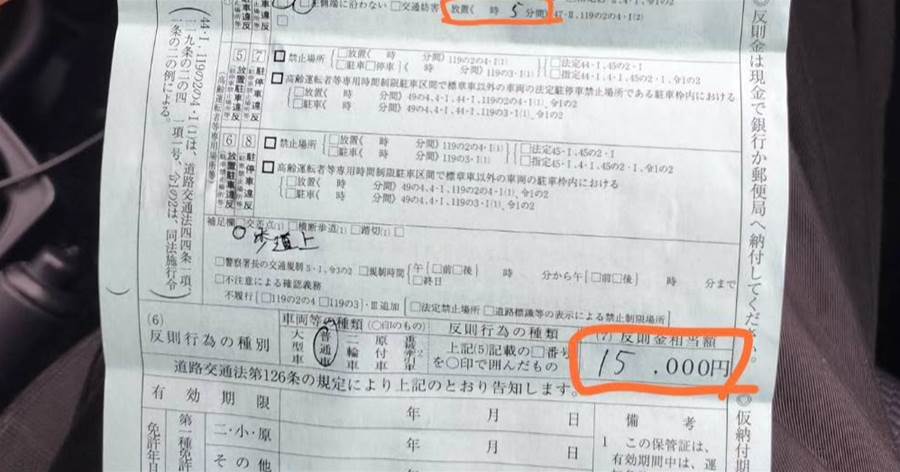 左側端に沿わない □交通妨害 放置( 時 5 分間) 47-Ⅱ、119の2の4-Ⅰ(2)
5 7 駐停車違反
放置駐車違反
□禁止場所 □放置( 時 分間) 119の2の4-Ⅰ(1) □法定44-Ⅰ、45の2-Ⅰ
□駐車□停車 119の3-Ⅰ(1) □指定44-Ⅰ、4-Ⅰ、45の2-Ⅰ、令1の2
□高齢運転者等専用時間制限駐車区間で標章車以外の車両の法定駐停車禁止場所である駐車枠内における
□放置( 時 分間) 49の4、4-Ⅰ、44-Ⅰ、119の2の4-Ⅰ(1)、令1の2
□駐車( 時 分間) 49の4、4-Ⅰ、44-Ⅰ、119の3-Ⅰ(1)、令1の2
6 8 駐車違反
放置駐車違反
□禁止場所 □放置( 時 分間) 119の2の4-Ⅰ(1) □法定45-Ⅰ、45の2-Ⅰ
□駐車( 時 分間) 119の3-Ⅰ(1) □指定45-Ⅰ、4-Ⅰ、45の2-Ⅰ、令1の2
□高齢運転者等専用時間制限駐車区間で標章車以外の車両の駐車枠内における
□放置( 時 分間) 49の4、4-Ⅰ、119の2の4-Ⅰ(1)、令1の2
□駐車( 時 分間) 49の4、4-Ⅰ、119の3-Ⅰ(1)、令1の2
補足欄 □交差点(1) □横断歩道(1) □踏切(1) □
歩道上
□警察署長の交通規制 5-Ⅰ、令3の2 □規制時間 午□前□後 時 分から午□前□後 時 分まで
□終日
□不注意による確認義務
不履行(□119の2の4 □119の3)-Ⅲ追加 □法定禁止場所 □道路標識等の表示による禁止制限場所
(6)
反則行為の種別
車両等の種類 (○印のもの)
大型車 普通車 二輪車 原付車
反則行為の種類
上記(5)記載の□番号を○印で囲んだもの
(7) 反則金相当額
15,000円
道路交通法第126条の規定により上記のとおり告知します。
有効期限 年 月 日
備考
免許年月日
第一種免許
二・小・原 年 月 日
その他 年 月 日
1 この保管証は、
有効期間中は、運
◎反則金は現金で銀行か郵便局へ納付してください。
◎仮納付期
44-Ⅰ、119の2の4-Ⅰ(1)は、道路交通法四四条一項、
一一九条の二の四 一項一号、令1の2は、同法施行令
一条の二の例による。